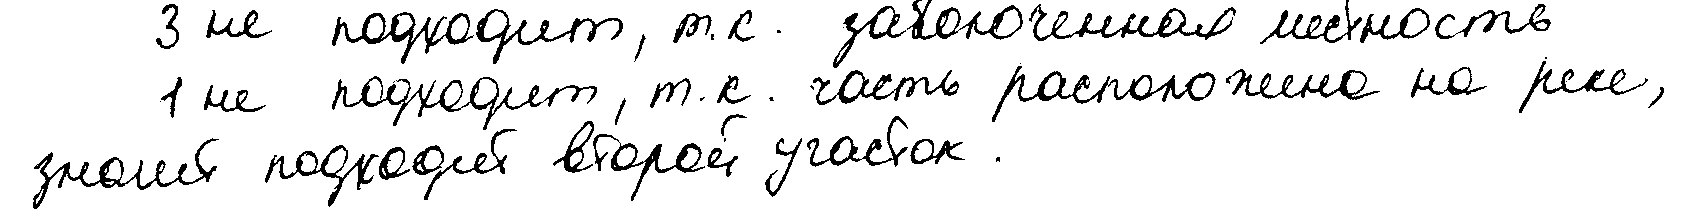 3 не подходит, т.к. заболоченная местность
1 не подходит, т.к. часть расположена на реке,
значит подходит второй участок.